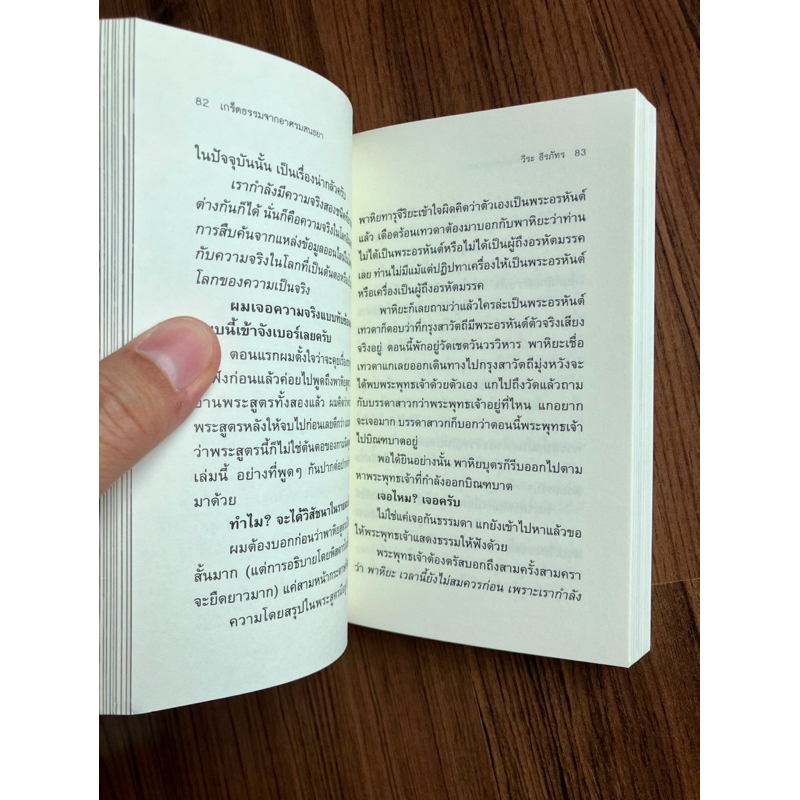 82 เกร็ดธรรมจากอาศรมสนธยา
ในปัจจุบันนั้น เป็นเรื่องน่ากลัวครับ
เรากำลังมีความจริงสองชนิดที่
ต่างกันก็ได้ นั่นก็คือความจริงในโลก
การสืบค้นจากแหล่งข้อมูลออนไลน์
กับความจริงในโลกที่เป็นต้นตอ
โลกของความเป็นจริง
ผมเจอความจริงแบบทับซ้อน
บนี้เข้าจังเบอร์เลยครับ
ตอนแรกผมตั้งใจว่าจะคุยเรื่อง
ฟังก่อนแล้วค่อยไปพูดถึงพาหิย
านพระสูตรทั้งสองแล้ว ผมคิดว่า
พระสูตรหลังให้จบไปก่อนเลยดีกว่า
ว่าพระสูตรนี้ก็ไม่ใช่ต้นตอของ
เล่มนี้ อย่างที่พูดๆ กันปากต่อปาก
มาด้วย
ทำไม? จะได้วิสัชนาใน
ผมต้องบอกก่อนว่าพาหิยสูตร
สั้นมาก (แต่การอธิบายโดยพิสดาร
จะยืดยาวมาก) แค่สามหน้ากระดาษ
ความโดยสรุปในพระสูตรมีอยู่
วีระ ธีรภัทร 83
พาหิยทารุจีริยะเข้าใจผิดคิดว่าตัวเองเป็นพระอรหันต์
แล้ว เดือดร้อนเทวดาต้องมาบอกกับพาหิยะว่าท่าน
ไม่ได้เป็นพระอรหันต์หรือไม่ได้เป็นผู้ถึงอรหัตมรรค
เลย ท่านไม่มีแม้แต่ปฏิปทาเครื่องให้เป็นพระอรหันต์
หรือเครื่องเป็นผู้ถึงอรหัตมรรค
พาหิยะก็เลยถามว่าแล้วใครล่ะเป็นพระอรหันต์
เทวดาก็ตอบว่าที่กรุงสาวัตถีมีพระอรหันต์ตัวจริงเสียง
จริงอยู่ ตอนนี้พักอยู่วัดเชตวันวรวิหาร พาหิยะเชื่อ
เทวดาแกเลยออกเดินทางไปกรุงสาวัตถีมุ่งหวังจะ
ได้พบพระพุทธเจ้าด้วยตัวเอง แกไปถึงวัดแล้วถาม
กับบรรดาสาวกว่าพระพุทธเจ้าอยู่ที่ไหน แกอยาก
จะเจอมาก บรรดาสาวกก็บอกว่าตอนนี้พระพุทธเจ้า
ไปบิณฑบาตอยู่
พอได้ยินอย่างนั้น พาหิยบุตรก็รีบออกไปตาม
หาพระพุทธเจ้าที่กำลังออกบิณฑบาต
เจอไหม? เจอครับ
ไม่ใช่แค่เจอกันธรรมดา แกยังเข้าไปหาแล้วขอ
ให้พระพุทธเจ้าแสดงธรรมให้ฟังด้วย
พระพุทธเจ้าต้องตรัสบอกถึงสามครั้งสามครา
ว่า พาหิยะ เวลานี้ยังไม่สมควรก่อน เพราะเรากำลัง